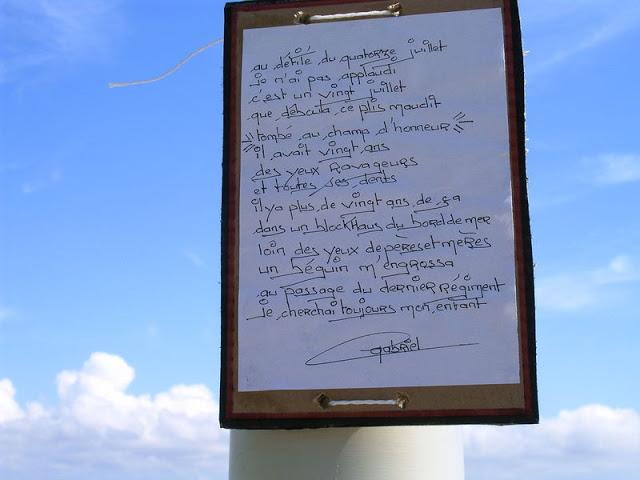 au défilé du quatorze juillet
je n'ai pas applaudi
c'est un vingt juillet
que débuta ce plis maudit
"tombé au champ d'honneur"
il avait vingt ans
des yeux ravageurs
et toutes ses dents
il y a plus de vingt ans de ça
dans un blockhaus du bord de mer
loin des yeux de pères et mères
un béguin m'engrossa
au passage du dernier régiment
je cherchai toujours mon enfant
gabriel